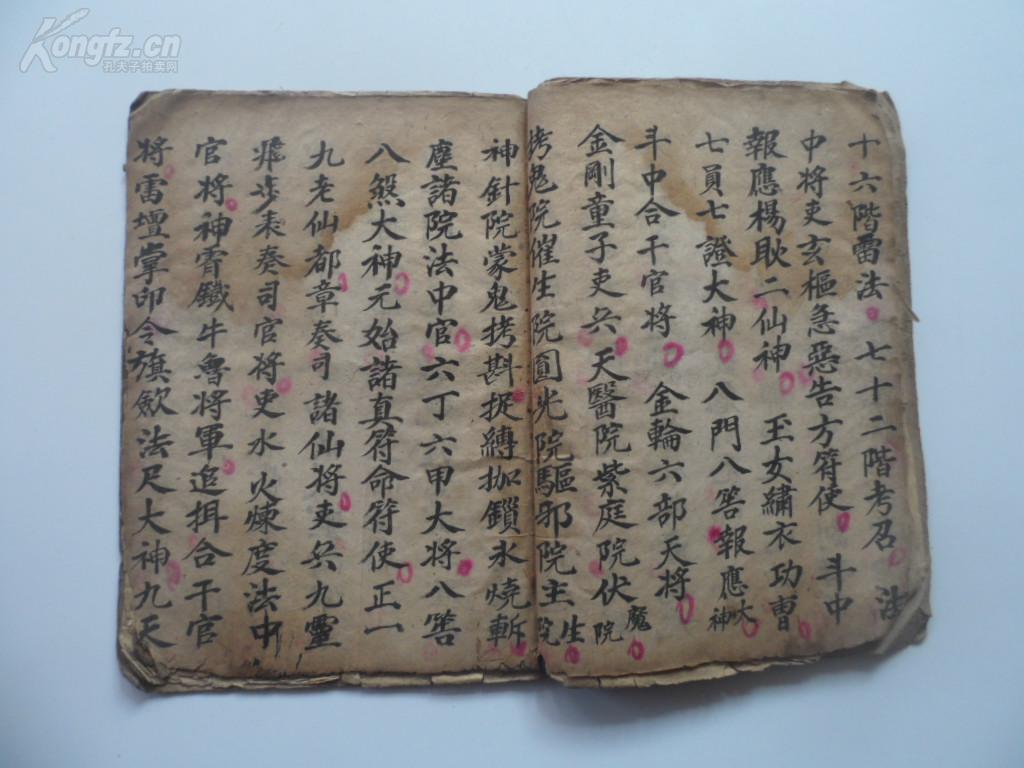 十六階雷法七十二階考召 法
中将吏玄樞急惡告方符使 斗中
報應楊耿二仙神 玉女繡衣功曹
七員七證大神 八門八答報應大神
斗中合干官将 金輪六部天將
金剛童子吏兵 天醫院紫庭院伏魔院
拷鬼院催生院圓光院驅邪院主生院
神針院蒙鬼拷斟捉縛枷鎖水燒斬
塵諸院法中官六丁六甲大将八
八煞大神元始諸真符命符使正一
九老仙都章奏司諸仙将吏兵九靈
表奏司官将吏水火煉度法中
官将神霄鐵牛魯將軍追揖合干官
将雷壇掌印令旗法尺大神九天
Kongfz.cn
孔夫子拍卖网